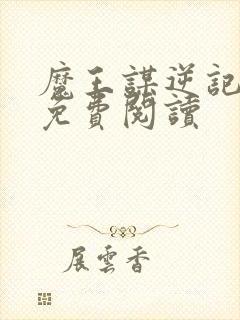 魔王謀逆記
免費閱讀
展雲香